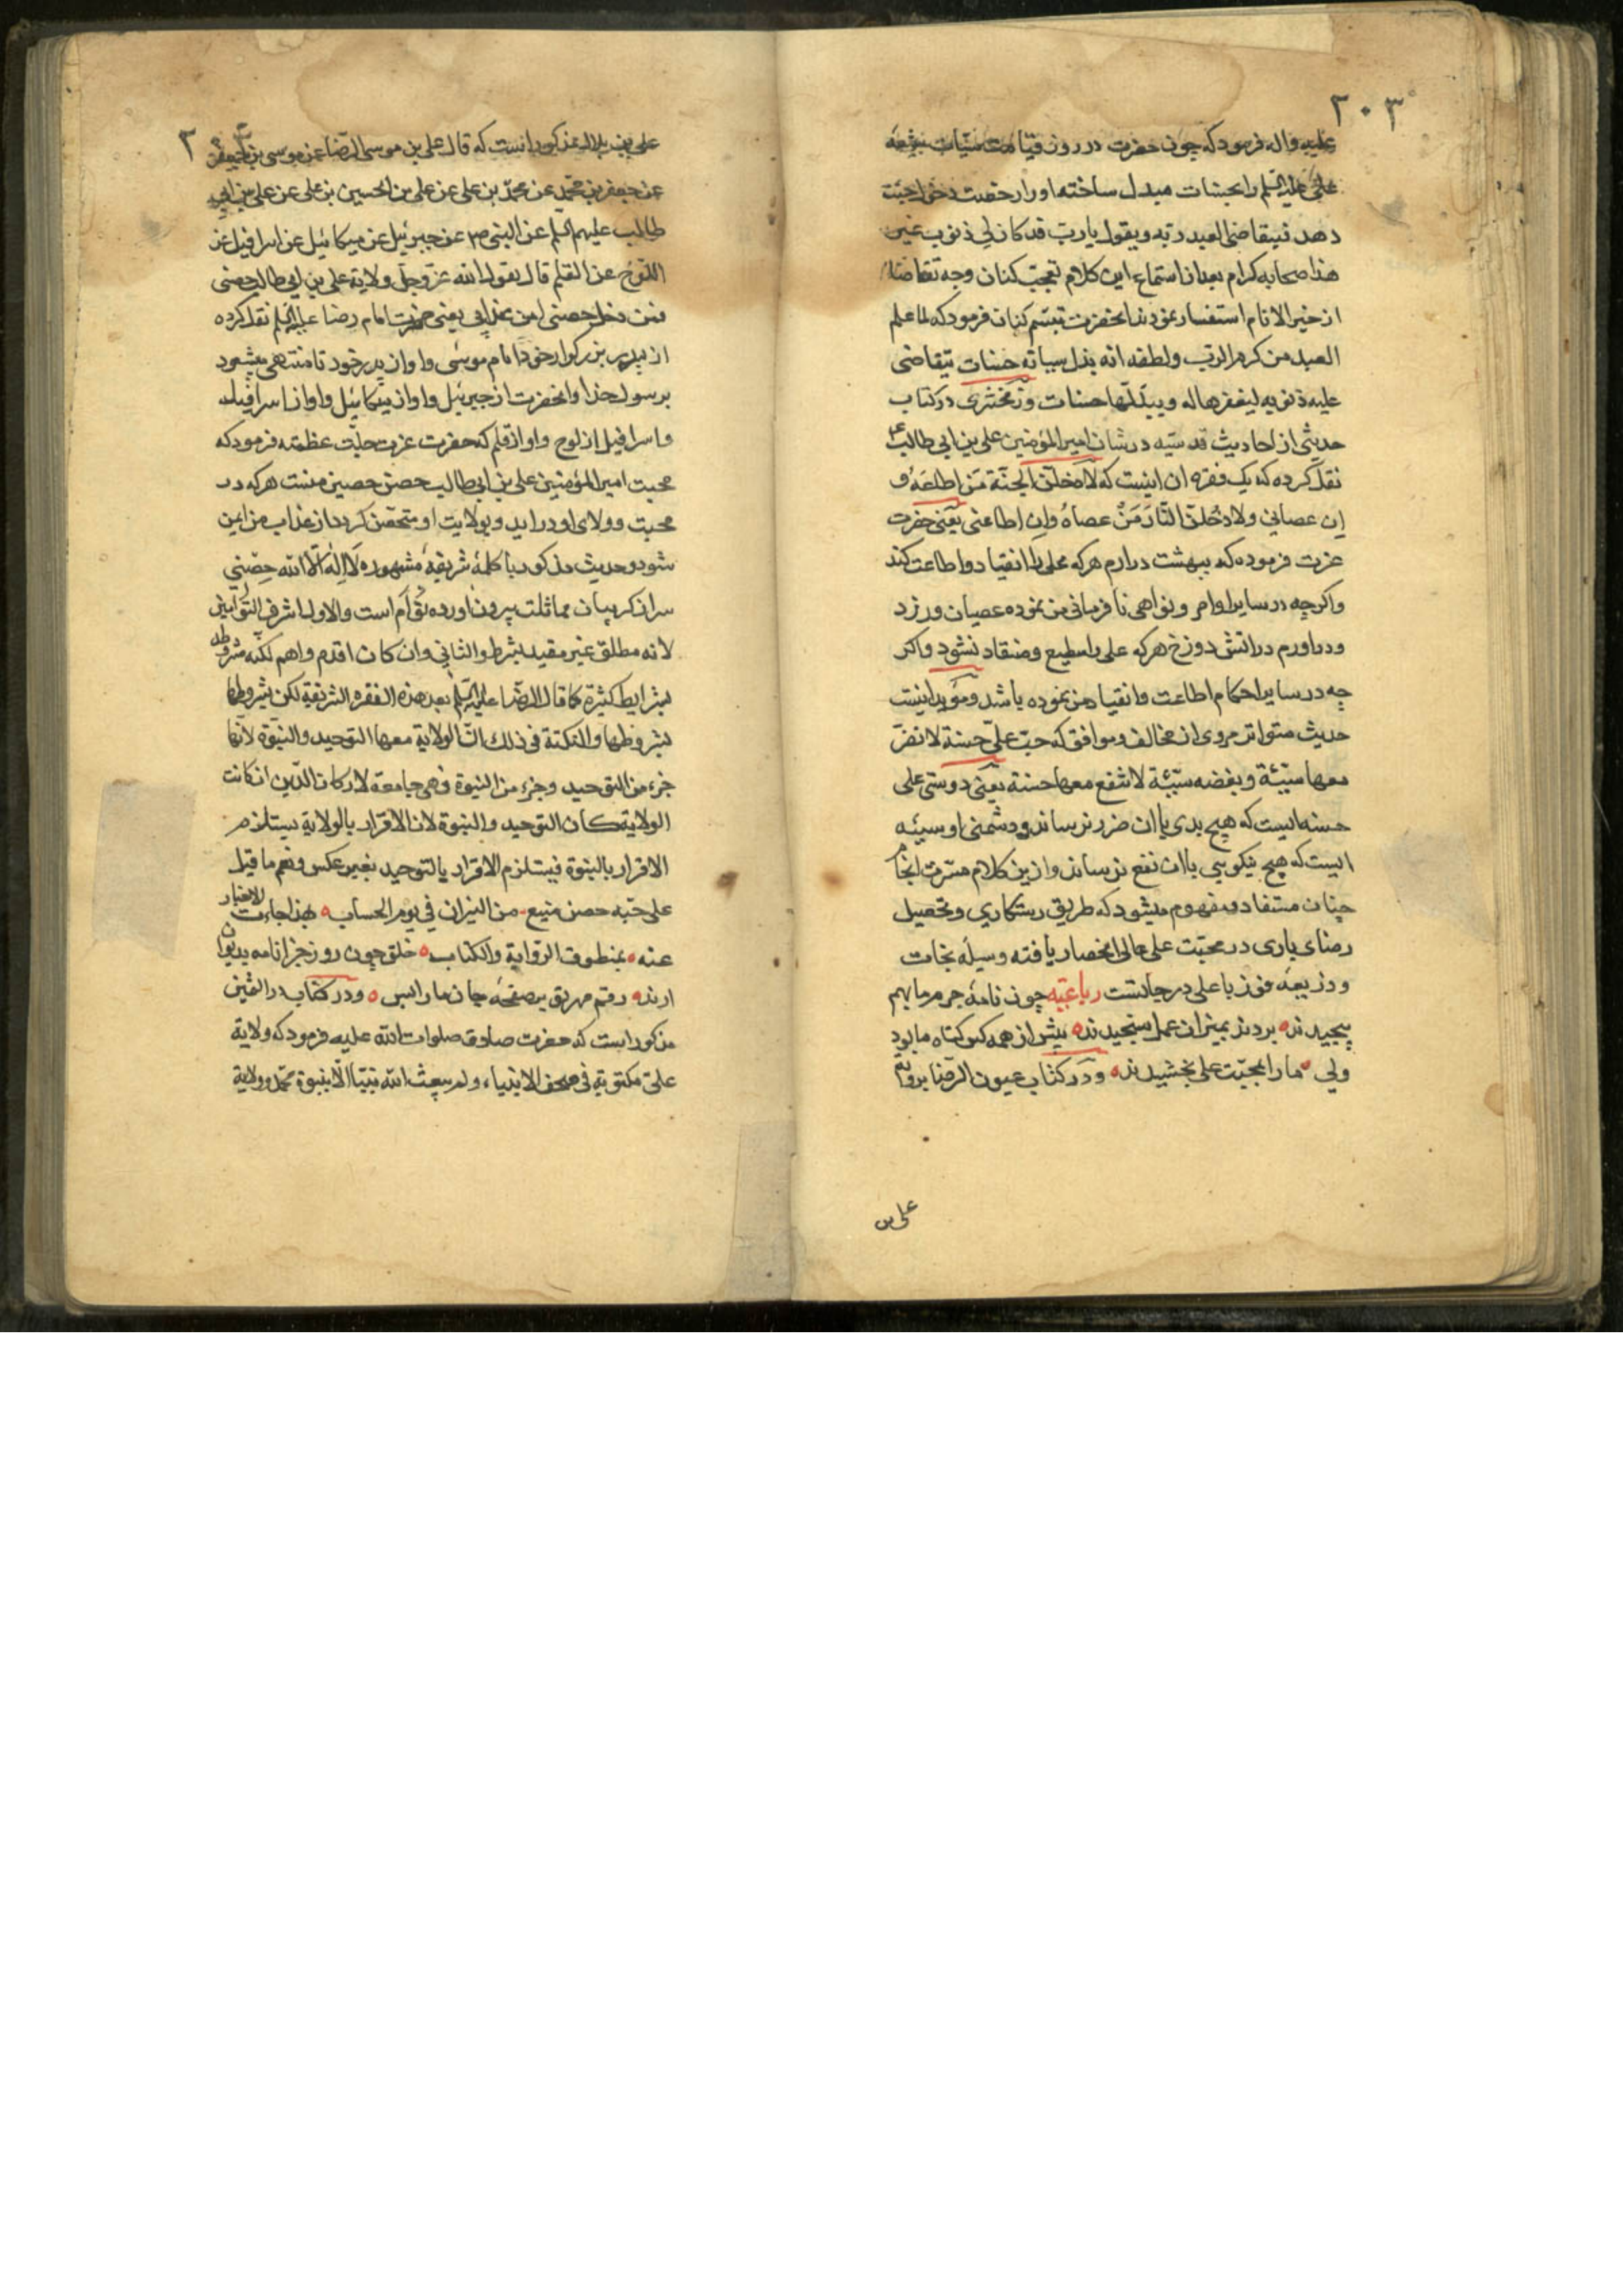 ۲۰۳
علیه واله فرمود که چون حضرت در روز قیامت سیّات شیعهٔ
علی علیه السلم را بحسنات مبدل ساخته او را رخصت دخول جنّت
دهد فیتقاضی العبد ربّه و یقول یا ربّ قد کان لی ذنوب غیر
هذا صحابه کرام بعد از استماع این کلام تعجب کنان وجه تقاضا را
از خیر الانام استفسار نمودند انحضرت تبسّم کنان فرمود که لما علم
العبد من کرم الربّ ولطفه انه بدل سیاته حسنات یتقاضی
علیه ذنوبه لیغفرها له ویبدّلها حسنات وزمخشری در کتاب
حدیثی از احادیث قدسیّه در شان امیر المؤمنین علی بن ابی طالب ع
نقل کرده که یک فقره ان اینست که لادخلنّ الجنّة مَن اطاعَهُ و
اِن عصانی ولادخُلنّ النّارَ مَنْ عصاهُ واِن اطاعنی یَعنی حضرت
عزت فرموده که ببهشت درارم هرکه علی را انقیاد و اطاعت کند
واکرچه در سایر اوامر ونواهی نافرمانی من نموده عصیان ورزد
ودراورم در اتش دوزخ هرکه علی را مطیع ومنقاد نشود واکر
چه در سایر احکام اطاعت وانقیاد من نموده باشد ومؤید اینست
حدیث متواتر مروی از مخالف وموافق که حبّ علیّ حسنة لا تضرّ
معها سیّئة وبغضه سیّئة لا تنفع معها حسنة یعنی دوستی علی
حسنه ایست که هیچ بدی با ان ضرر نرساند ودشمنی او سیئه
ایست که هیچ نیکویی با ان نفع نرساند وازین کلام مسّرت انجام
چنان مستفاد ومفهوم میشود که طریق رستکاری وتحصیل
رضای باری در محبّت علی عالی انحصار یافته وسیلهٔ نجات
وذریعهٔ فوز باعلی درجاتست رباعیّه چون نامهٔ جرم ما بهم
پیچیدند بردند بمیزان عمل سنجیدند بیش از همه کس کناه ما بود
ولی ما را بمحبّت علی بخشیدند ودر کتاب عیون الرضا بروایة
علی بن
۳
علی بن بلال مذکور انست که قال علی بن موسی الرّضا عن موسی بن جعفر
عن جعفر بن محمّد عن محمّد بن علی عن علی بن الحسین بن علی عن علی بن ابی
طالب علیهم السلم عن النبی ص عن جبرئیل عن میکائیل عن اسرافیل عن
اللّوح عن القلم قال یقول الله عزّ وجلّ ولایة علی بن ابی طالب حصنی
فمن دخل حصنی امن عذابی یعنی حضرت امام رضا علیه السلم نقل کرده
از پدر بزرکوار خود امام موسی واو از پدر خود تا منتهی میشود
برسول خدا وانحضرت از جبرئیل واو از میکائیل واو از اسرافیل
واسرافیل از لوح واو از قلم که حضرت عزت جلّت عظمته فرمود که
محبت امیر المؤمنین علی بن ابی طالب حصن حصین منست هرکه در
محبت وولای او دراید وبولایت او متحصّن کردد از عذاب من ایمن
شود وحدیث مذکور با کلمهٔ شریفهٔ مشهوره لا اِلٰه الّا الله حِصْنی
سر از کریبان مماثلت بیرون اورده تُوأم است والاول اشرف التوأمین
لانه مطلق غیر مقید بشرط والثانی وان کان اقدم واهم لکنه مشروط
بشرایط کثیرة کما قال الرّضا علیه السلم بعد هذه الفقره الشریفة لکن بشروطها
بشروطها والنکتة فی ذلک انّ الولایة معها التوحید والنبوّة لانّها
جزء من التوحید وجزء من النبوة فهی جامعة لارکان الدّین ان کانت
الولایة کان التوحید والنبوة لان الاقرار بالولایة یستلزم
الاقرار بالنبوة فیستلزم الاقرار بالتوحید بغیر عکس ونعم ما قیل
علی حبّه حصن منیع من النیران فی یوم الحساب بهذا جاءت الاخبار
عنه بمنطوق الرّوایة والکتاب خلق چون روز جزا نامه بدیوان
ارند رقم مهر تو بر صفحهٔ جان ما را بس ودر کتاب در الثمین
مذکور است که حضرت صادق صلوات الله علیه فرمود که ولایة
علیّ مکتوبة فی صحف الانبیاء ولم یبعث الله نبیّا الّا بنبوة محمّد وولایة